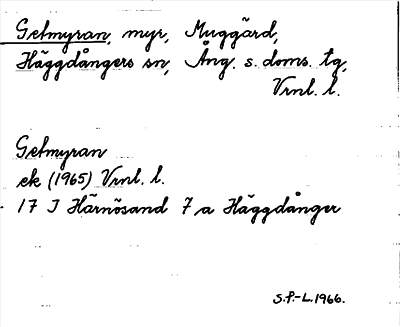 Getmyran, myr, Muggärd,
Häggdångers sn, Ång. s. doms. tg,
Vrnl. l.
Getmyran
ek (1965) Vrnl. l.
17 I Härnösand 7 a Häggdånger
S.P.-L. 1966.